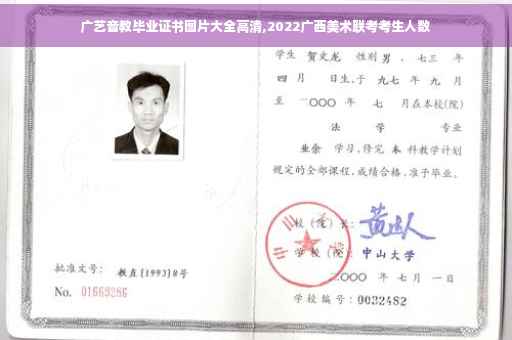 广艺音教毕业证书图片大全高清,2022广西美术联考考生人数
学生 贺文龙 性别 男 、七三 年
四 月 日生,于 九七 年 九 月
至 二〇〇〇 年 七 月在本校(院)
法 学 专业
业余 学习,修完 本 科教学计划
规定的全部课程,成绩合格,准予毕业。
校(院)长:
学校(院): 中山大学
二〇〇〇 年 七 月 一 日
学校编号: 0032482
批准文号: 教直[1993]8号
No. 01669286